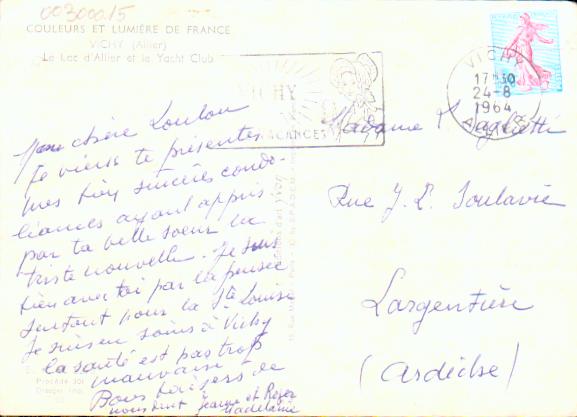 00300015
COULEURS ET LUMIÈRE DE FRANCE
VICHY (Allier)
Le Lac d'Allier et le Yacht Club
VICHY
VACANCES
VICHY
17H30
24-8
1964
Madame
Rue J. L. Soulavie
Largentière
(Ardèche)
Mon chère Loulou
Je viens te présenter
mes bien sincères condo-
léances ayant appris
par ta belle soeur la
triste nouvelle. Je suis
bien avec toi par la pensée
surtout pour la Ste Louise
Je suis en soins à Vichy
la santé est pas trop
mauvaise
Bons baisers de
nous tous Jeanne et Roger
Madelaine